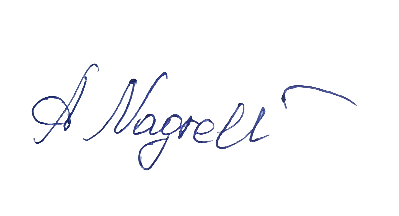 A Nagrelli